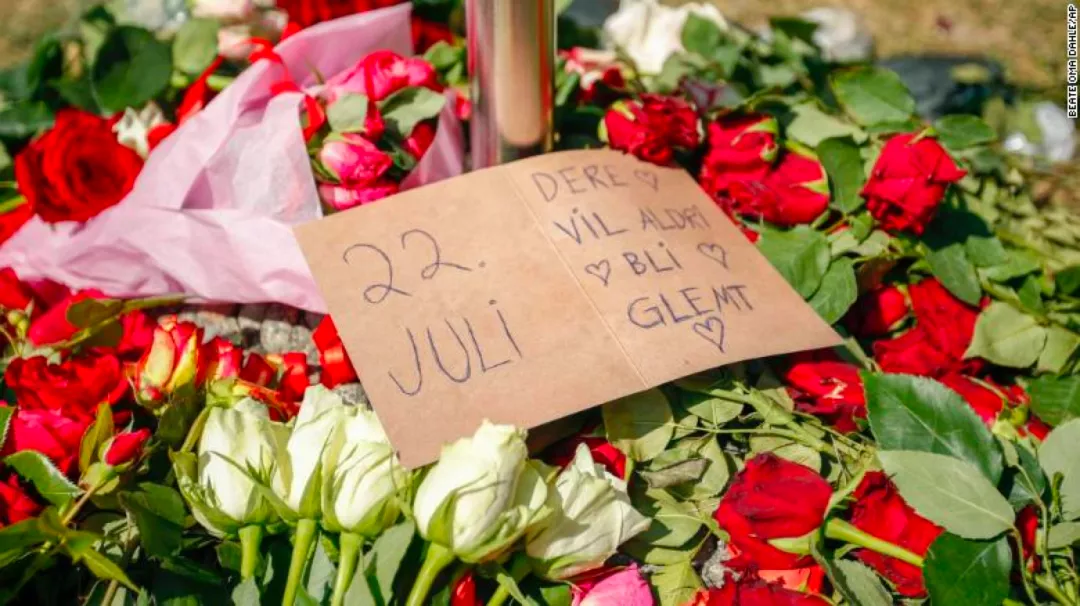 22.
JULI
DERE ♡
VIL ALDRI
♡ BLI ♡
GLEMT
♡
BEATE OMA DAHLE/AP